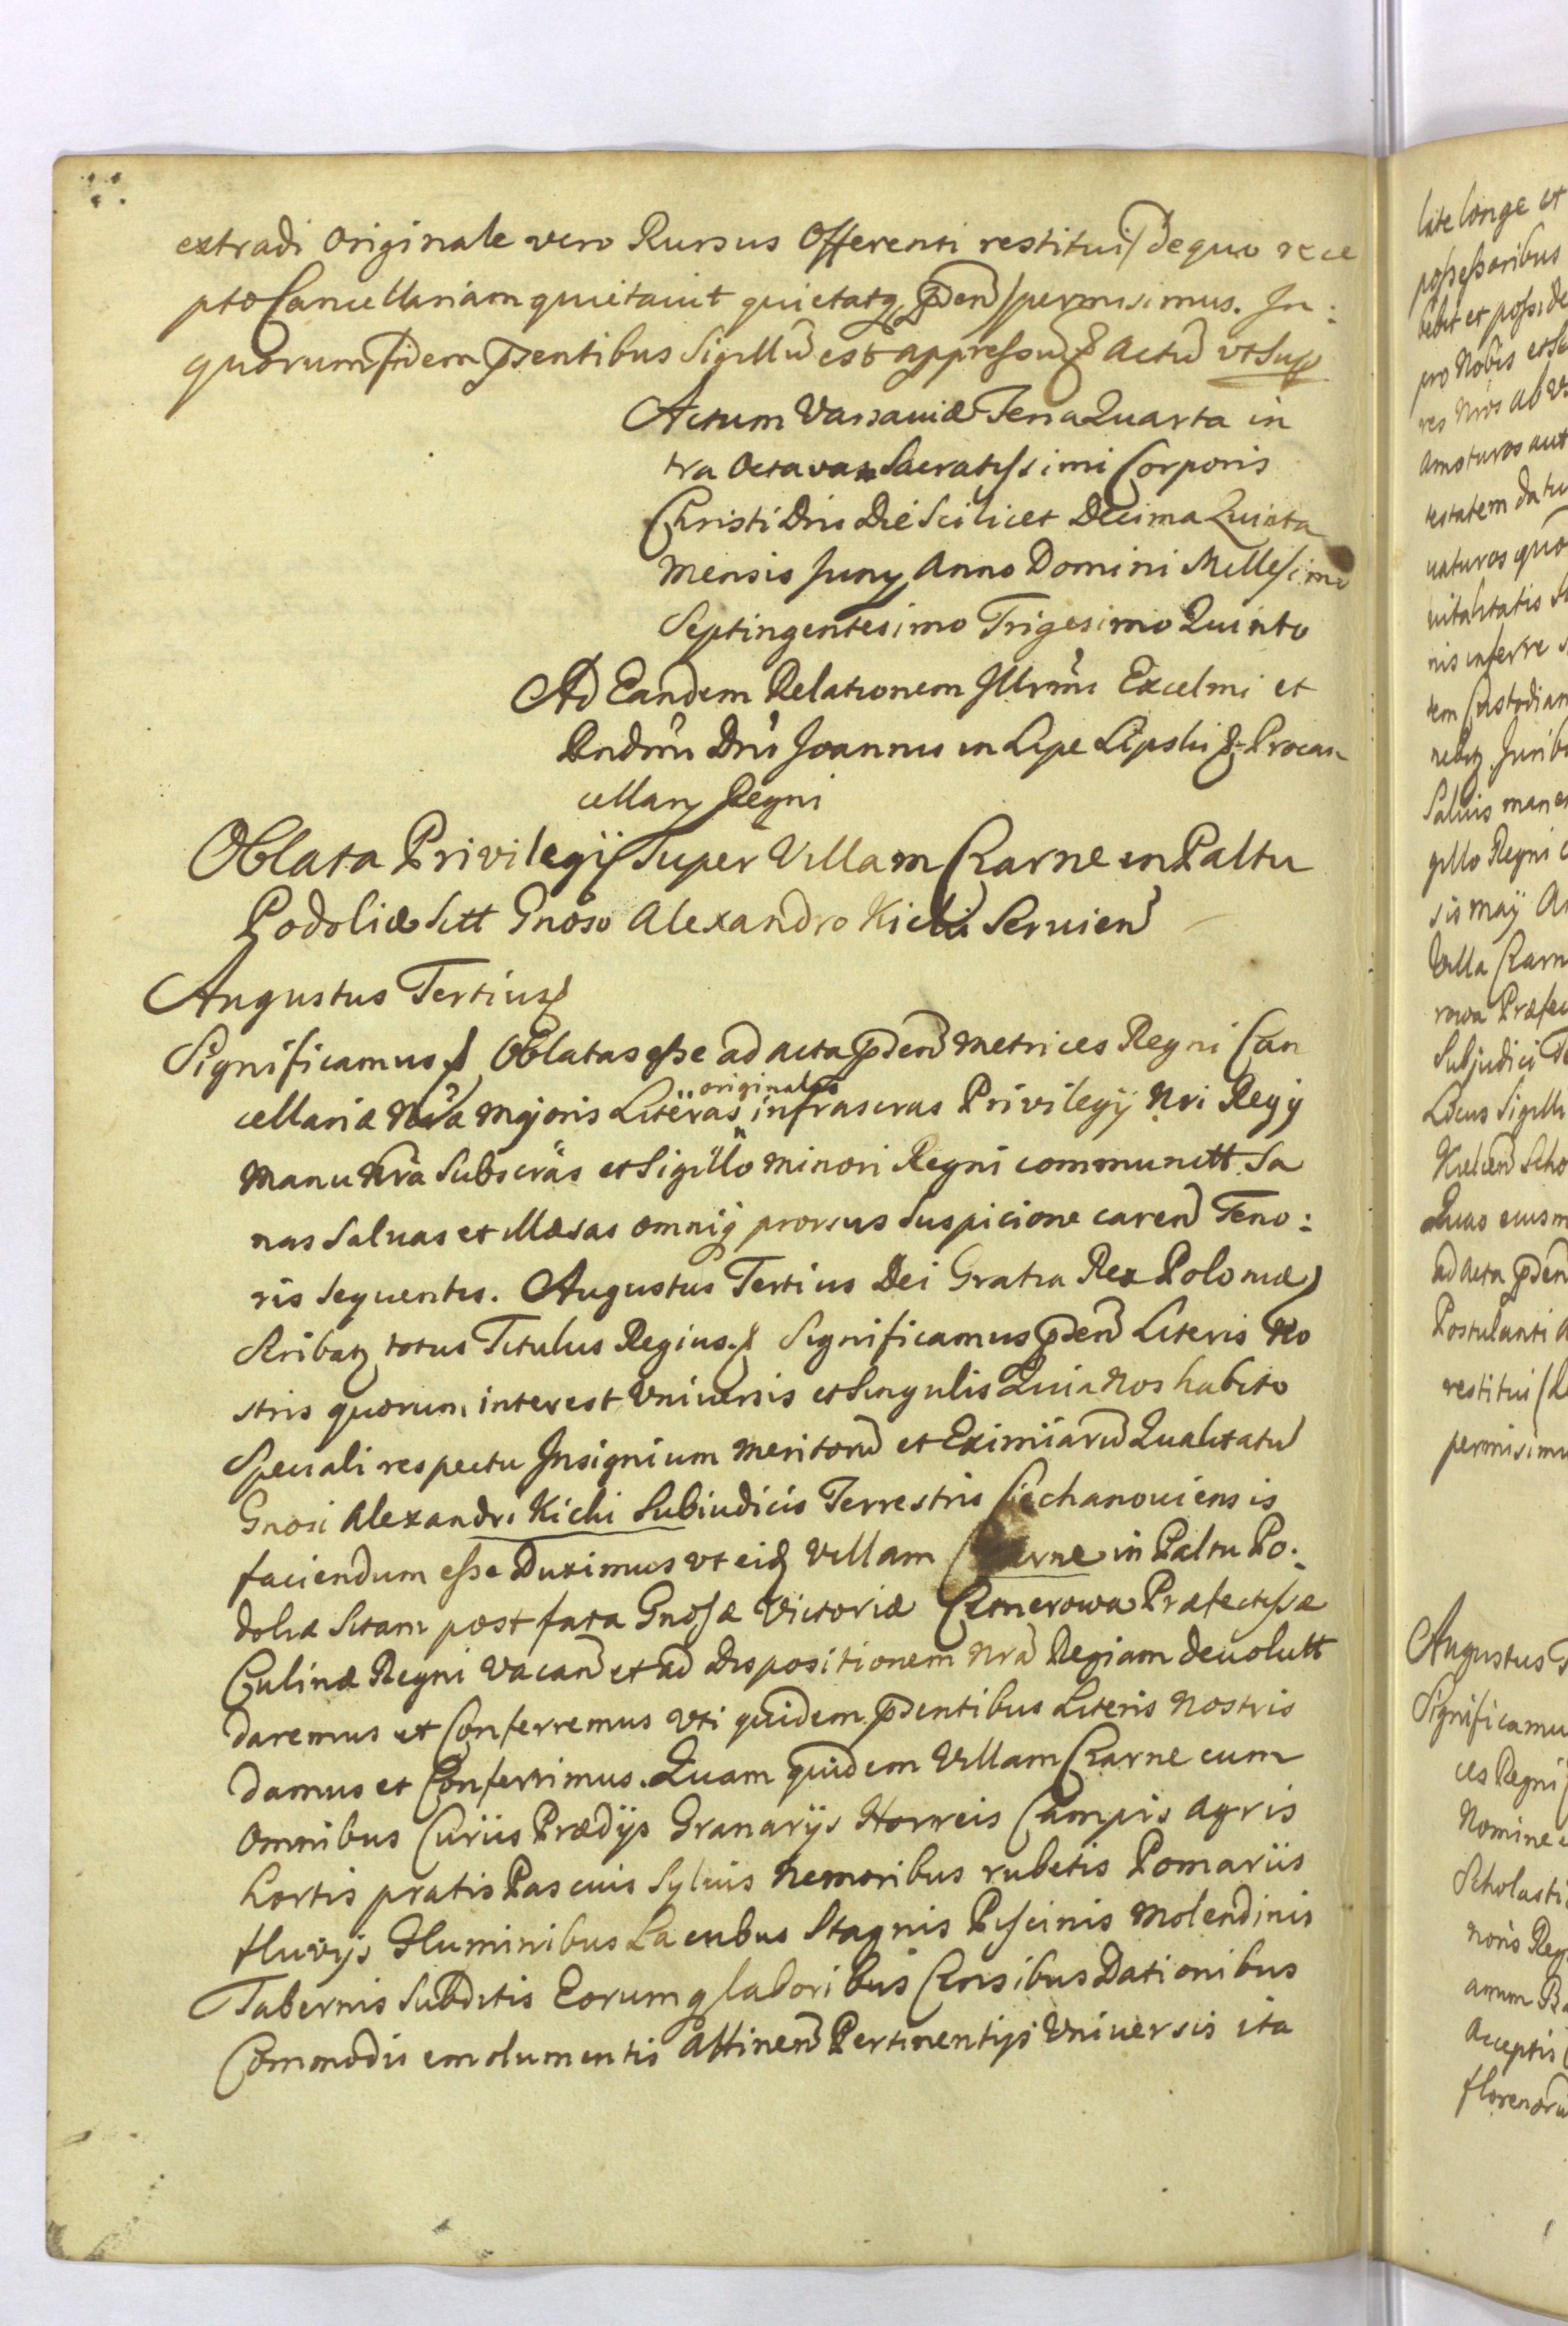 extradi originale vero Rursus Offerenti restitui / de quo rece
pto Cancellariam quietavit quietatq pden / permisimus. In:
quorum fidem psentibus Sigillu est appressu & Actu vt Sup
Actum Varsaviæ Feria Quarta in
tra Octavam Sacratissimi Corporis
Christi Dni Die Scilicet Decima Quinta
Mensis Juny Anno Domini Millesimo
Septingentesimo Trigesimo Quinto
Ad Eandem Relationem Illrmi Excelmi et
Rndmi Dni Joannis in Lipe Lipski & Procan
cellary Regni
Oblata Privilegij Super Villam Czarne in Paltu
Podoliæ Sitt Gnoso Alexandro Kicki Servien
Augustus Tertius &
Significamus & Oblatas esse ad acta pden Metrices Regni Can
cellariæ Nra Majoris Literas originales infrascras Privilegij Nri Regij
Manu Nra Subscras et Sigillo minori Regni communitt Sa
nas Salvas et Illæsas omniq prorsus Suspicione caren Teno:
ris Sequentis. Augustus Tertius Dei Gratia Rex Poloniæ)
Scribatq totus Titulus Regius. & Significamus pden Literis No
stris quorum interest Vniversis et Singulis Quia Nos habito
Speciali respectu Insignium Meritoru et Eximiiaru Qualitatu
Gnosi Alexandri Kicki Subiudicis Terrestris Ciechanoviensis
faciendum esse Duximus vt eid Villam Czarne in Paltu Po:
doliæ Sitam post fata Gnosæ Victoriæ Czmerowa Præfectissæ
Culinæ Regni Vacan et ad Dispositionem Nra Regiam devolutt
daremus et Conferremus Vti quidem psentibus Literis Nostris
damus et Conferrimus. Quam quidem Villam Czarne cum
Omnibus Curiis Prædijs Granarijs Horreis Campis Agris
hortis pratis Pascuis Sylvis Nemoribus rubetis Pomariis
fluvijs Fluminibus Lacubus Stagnis Piscinis Molendinis
Tabernis Subditis Eorumq laboribus Censibus Dationibus
Commodis emolumentis Attinen Pertinentijs Vniversis ita
late longe et
possessoribus
pro Nobis et Su
res Nros ab
amoturos aut
testatem datu
naturos quo
vitalitatis
nis inferre
Salvis mane
gillo Regni
sis maij A
Villa Czarn
rowa Præfec
Subjudici Te
Locus Sigilli
Quas eiusm
ad acta pden
Postulanti
restitui
permisimu
Augustus T
Significamu
ces Regni
Nomine
Scholasti
Acceptis
florenoru